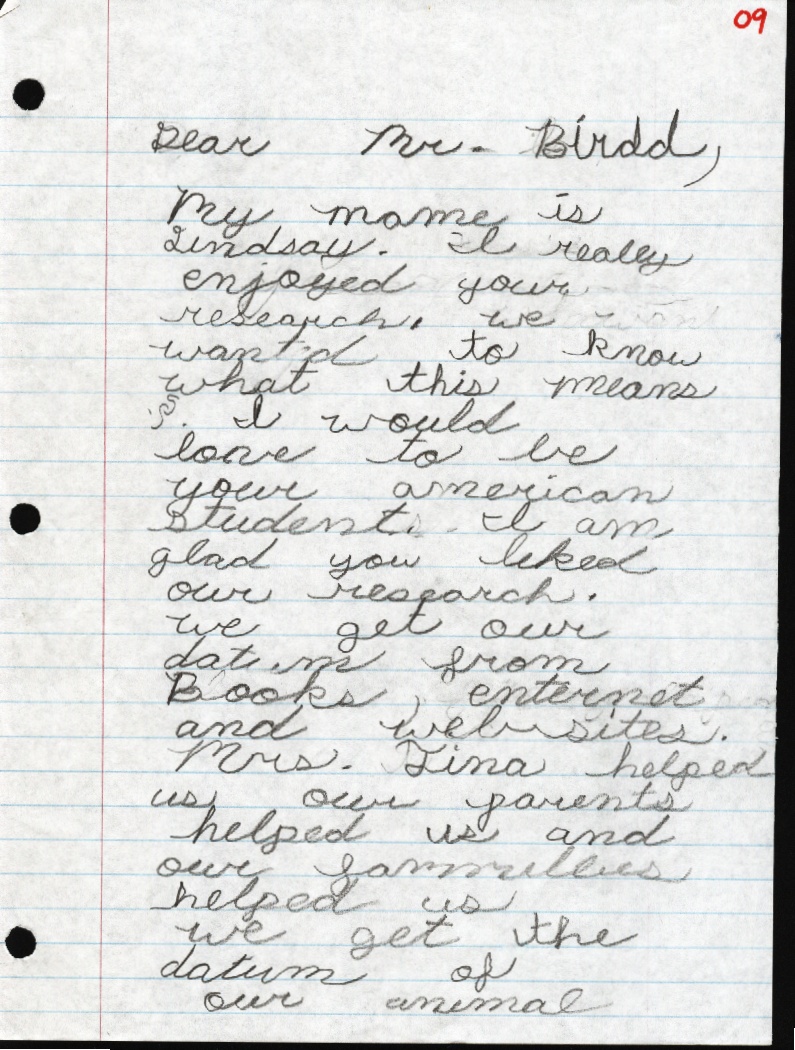 09
Dear Mr. Birdd,
My mame is
Lindsay. I really
enjoyed your
research. we
want'd to know
what this means
?. I would
love to be
your american
student. I am
glad you liked
our research.
we get our
datum from
Books, enternet
and web sites.
Mrs. Tina helped
us our parents
helped us and
our fammillies
helped us
we get the
datum of
our animal